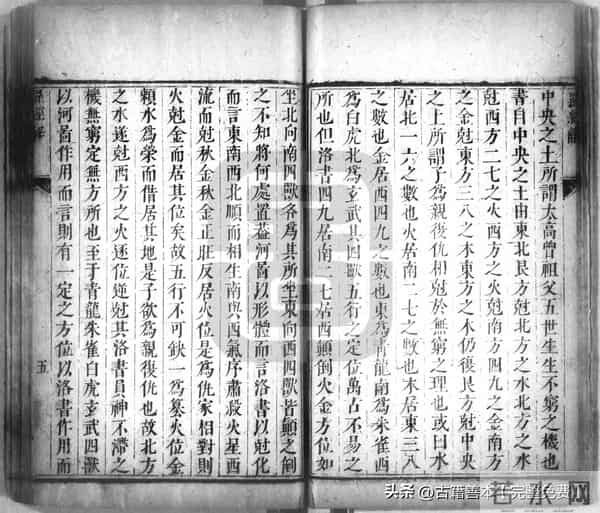 中央之土所謂太高曾祖父五世生生不窮之機也
書自中央之土由東北艮方尅北方之水北方之水
尅西方二七之火西方之火尅南方四九之金南方
之金尅東方三八之木東方之木仍復艮方尅中央
之土所謂子為親復仇相尅於無窮之理也或曰水
居北一六之數也火居南二七之數也木居東三八
之數也金居西四九之數也東為青龍南為朱雀西
為白虎北為玄武其四獸五行之定位萬古不易之
所也但洛書四九居南二七居西顛倒火金方位如
坐北向南四獸各為其所坐東向西四獸皆顛之制
之不知將何處置蓋河啚以形體而言洛書以尅化
而言東南西北順而相生南與西氣序肅殺火星西
流而尅秋金秋金正旺反居火位是為仇家相對則
火尅金而居其位矣故五行不可缺一為墓火位金
賴水為榮而借居其地是子欲為親復仇也故北方
之水遂尅西方之火遂位逆尅其洛書員神不滯之
機無窮定無方所也至于青龍朱雀白虎玄武四獸
以河啚作用而言則有一定之方位以洛書作用而
五
頭条 @古籍善本王完整免費